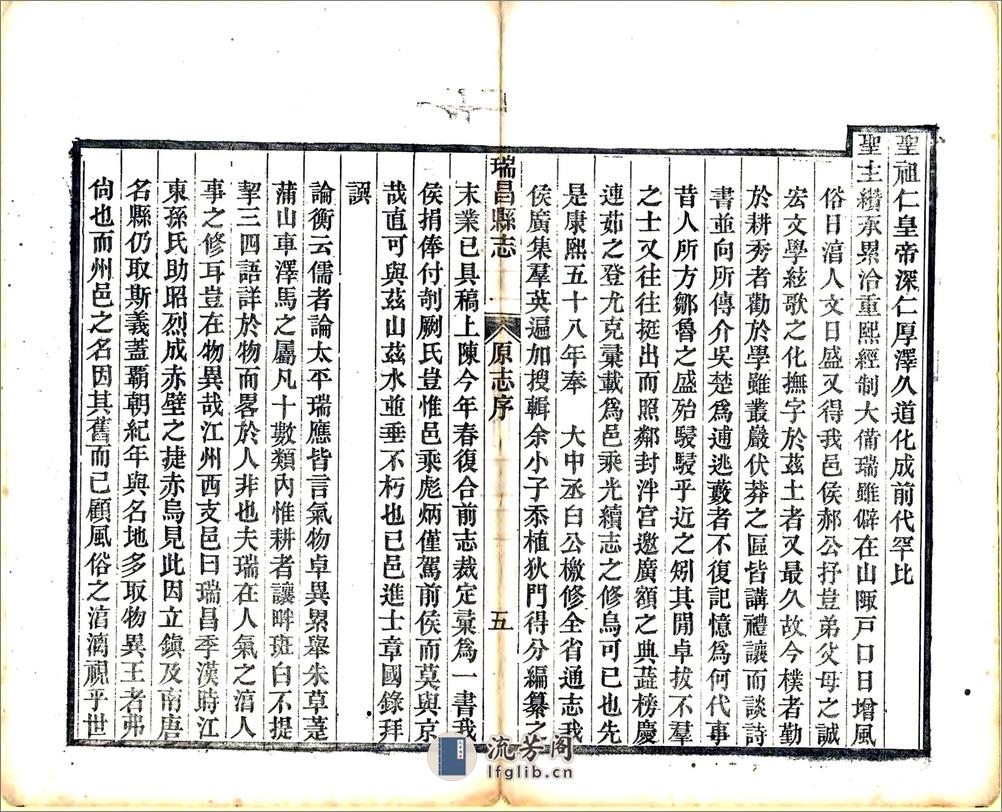 聖祖仁皇帝深仁厚澤久道化成前代罕比
聖主纘承累洽重熙經制大備瑞雖僻在山陬戸口日增風
俗日湻人文日盛又得我邑侯郝公抒豈弟父母之誠
宏文學絃歌之化撫字於茲土者又最久故今樸者勤
於耕秀者勸於學雖叢嚴伏莽之區皆講禮讓而談詩
書並向所傳介吳楚爲逋逃藪者不復記憶爲何代事
昔人所方鄒魯之盛殆駸駸乎近之矧其閒卓拔不羣
之士又往往挺出而照鄰封泮宮邀廣額之典蕋榜慶
連茹之登尤克彙載爲邑乘光續志之修烏可已也先
是康熙五十八年奉 大中丞白公檄修全省通志我
侯廣集羣英遍加搜輯余小子忝植狄門得分編纂之
瑞昌縣志 原志序 五
末業已具稿上陳今年春復合前志裁定彙爲一書我
侯捐俸付剞劂氏豈惟邑乘彪炳僅駕前侯而莫與京
哉直可與茲山茲水並垂不朽也已邑進士章國錄拜
譔
論衡云儒者論太平瑞應皆言氣物卓異累舉朱草萐
蒲山車澤馬之屬凡十數類內惟耕者讓畔斑白不提
挈三四語詳於物而畧於人非也夫瑞在人氣之湻人
事之修耳豈在物異哉江州西支邑曰瑞昌季漢時江
東孫氏助昭烈成赤壁之捷赤烏見此因立鎮及南唐
名縣仍取斯義蓋覇朝紀年與名地多取物異王者弗
尙也而州邑之名因其舊而已顧風俗之湻漓視乎世
流芳阁
lfglib.cn